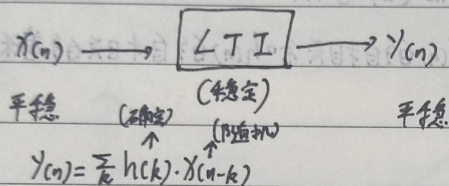 x(n) → LTI → y(n)
(稳定)
平稳 平稳
(确定) (随机)
y(n)=Σ_k h(k)·x(n-k)